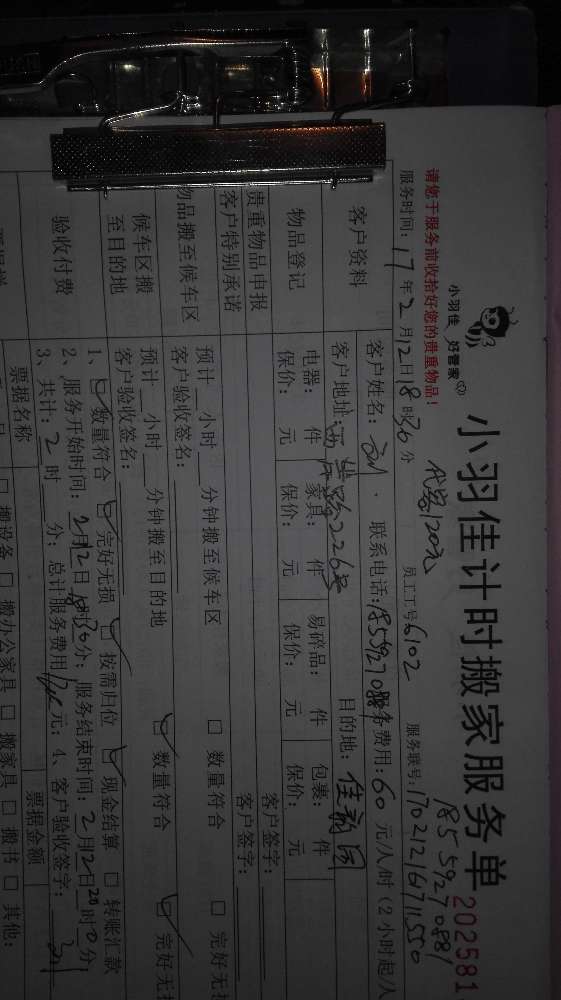 小羽佳 好管家
小羽佳计时搬家服务单
202581
请您于服务前收拾好您的贵重物品！
代客120元
18559270881
服务时间：17年2月12日18时36分 员工工号6102 服务联号：17021216171550
客户资料
客户姓名： 联系电话：1855927088 服务费用：60元/人/时（2小时起/人
客户地址： 226号 目的地：佳韵园
物品登记
电器： 件 家具： 件 易碎品： 件 包裹： 件
保价： 元 保价： 元 保价： 元 保价： 元
贵重物品申报 客户签字：
客户特别承诺 客户签字：
物品搬至候车区
预计 小时 分钟搬至候车区 □ 数量符合 □ 完好无损
客户验收签名：
候车区搬至目的地
预计 小时 分钟搬至目的地 □ 数量符合 □ 完好无损
客户验收签名：
验收付费
1、□ 数量符合 □ 完好无损 □ 按需归位 □ 现金结算 □ 转账汇款
2、服务开始时间：2月12日18时30分；服务结束时间：2月2日20时0分；
3、共计：2时 分；总计服务费用 元；4、客户验收签字：
票据名称 票据金额
□ 搬设备 □ 搬办公家具 □ 搬家具 □ 搬书 □ 其他：